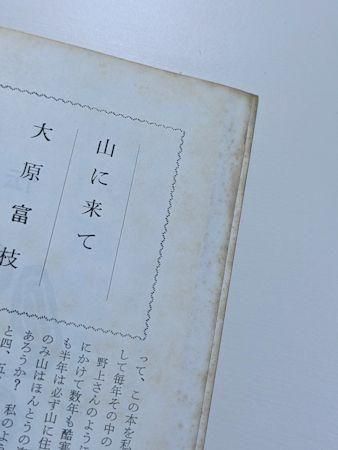 山に来て
大原富枝
って、この本を私
して毎年その中の
野上さんのように
にかけて数年も酷寒
も半年は必ず山に住
のみ山はほんとうの
あろうか？
と四、五
私のよう